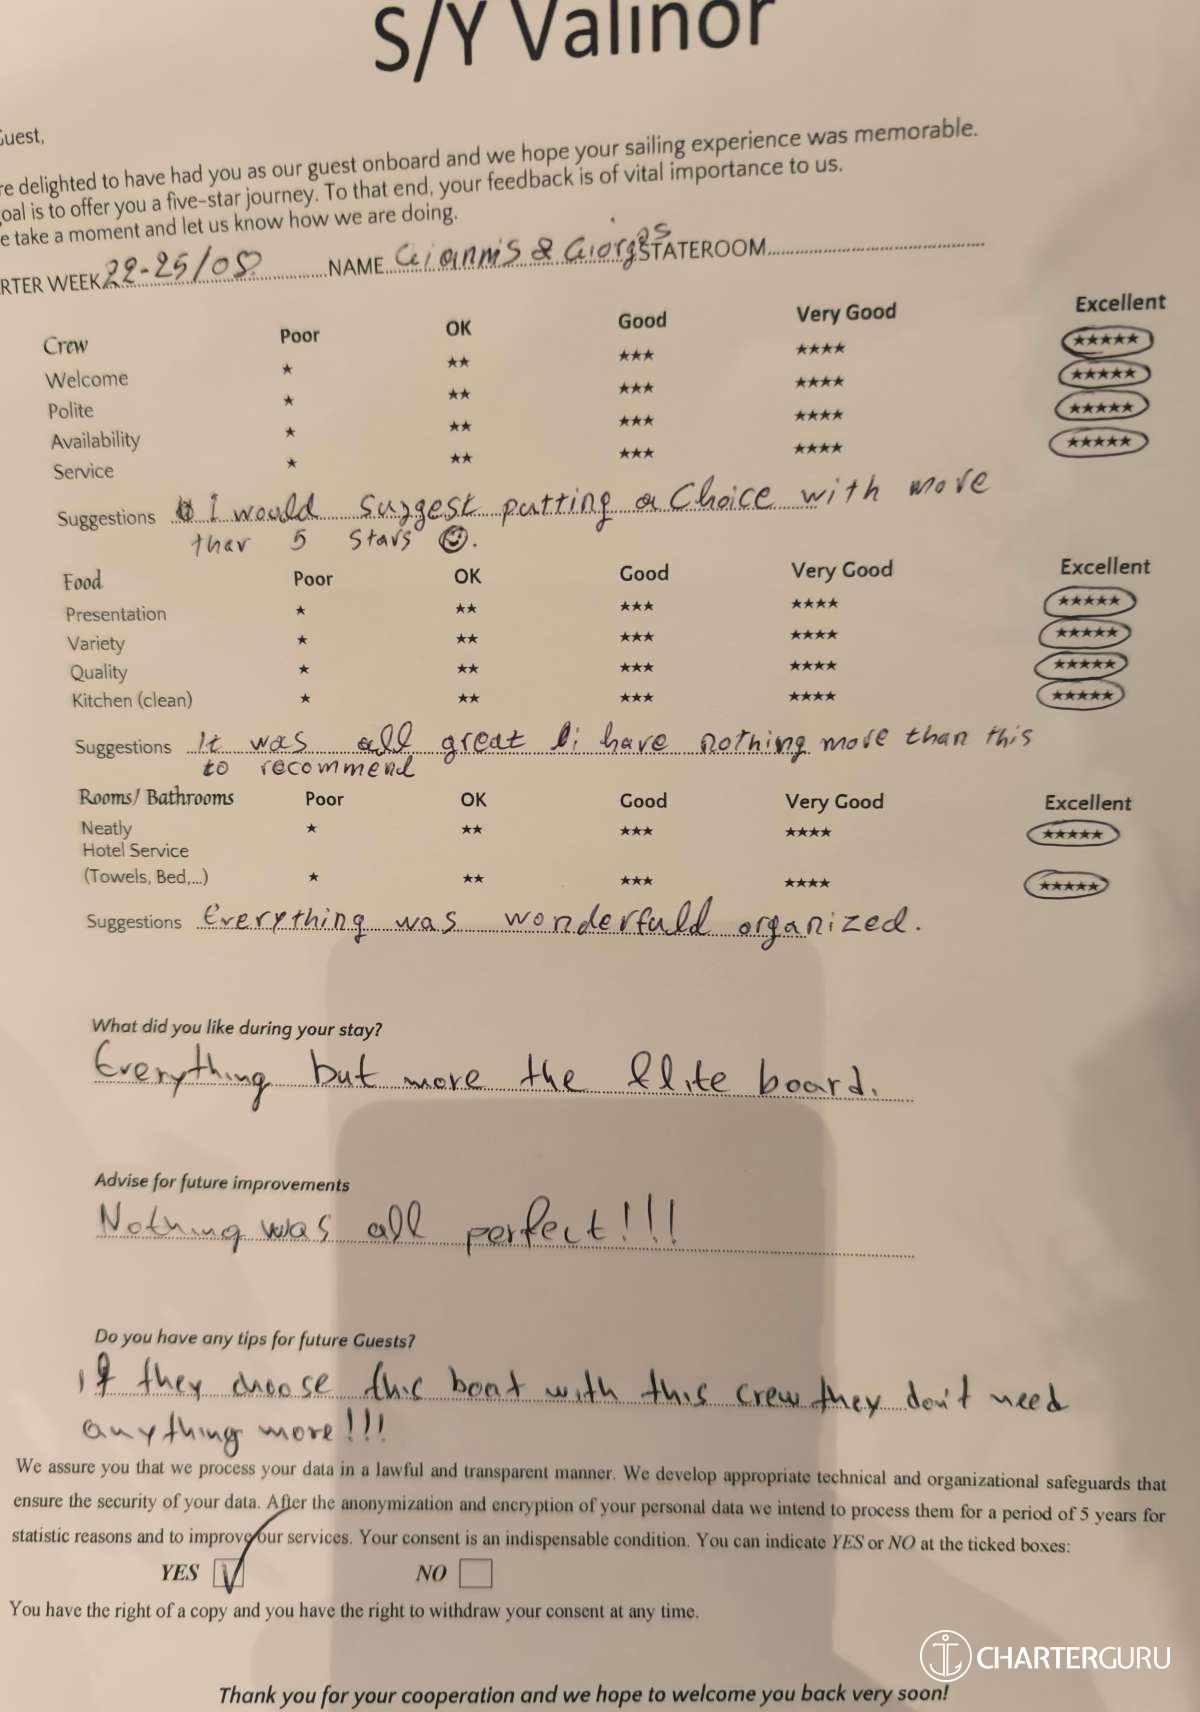 S/Y Valinor
Guest,
re delighted to have had you as our guest onboard and we hope your sailing experience was memorable.
oal is to offer you a five-star journey. To that end, your feedback is of vital importance to us.
e take a moment and let us know how we are doing.
RTER WEEK 22-25/08 NAME Giannis & Giorgos STATEROOM
Crew Poor OK Good Very Good Excellent
Welcome ★ ★★ ★★★ ★★★★ ★★★★★
Polite ★ ★★ ★★★ ★★★★ ★★★★★
Availability ★ ★★ ★★★ ★★★★ ★★★★★
Service ★ ★★ ★★★ ★★★★ ★★★★★
Suggestions I would suggest putting a Choice with more
than 5 stars ☺.
Food Poor OK Good Very Good Excellent
Presentation ★ ★★ ★★★ ★★★★ ★★★★★
Variety ★ ★★ ★★★ ★★★★ ★★★★★
Quality ★ ★★ ★★★ ★★★★ ★★★★★
Kitchen (clean) ★ ★★ ★★★ ★★★★ ★★★★★
Suggestions It was all great i have nothing more than this
to recommend
Rooms/ Bathrooms Poor OK Good Very Good Excellent
Neatly ★ ★★ ★★★ ★★★★ ★★★★★
Hotel Service
(Towels, Bed,...) ★ ★★ ★★★ ★★★★ ★★★★★
Suggestions Everything was wonderfuld organized.
What did you like during your stay?
Everything but more the Elite board.
Advise for future improvements
Nothing was all perfect!!!
Do you have any tips for future Guests?
If they choose this boat with this crew they don't need
anything more!!!
We assure you that we process your data in a lawful and transparent manner. We develop appropriate technical and organizational safeguards that
ensure the security of your data. After the anonymization and encryption of your personal data we intend to process them for a period of 5 years for
statistic reasons and to improve our services. Your consent is an indispensable condition. You can indicate YES or NO at the ticked boxes:
YES NO
You have the right of a copy and you have the right to withdraw your consent at any time.
CHARTERGURU
Thank you for your cooperation and we hope to welcome you back very soon!